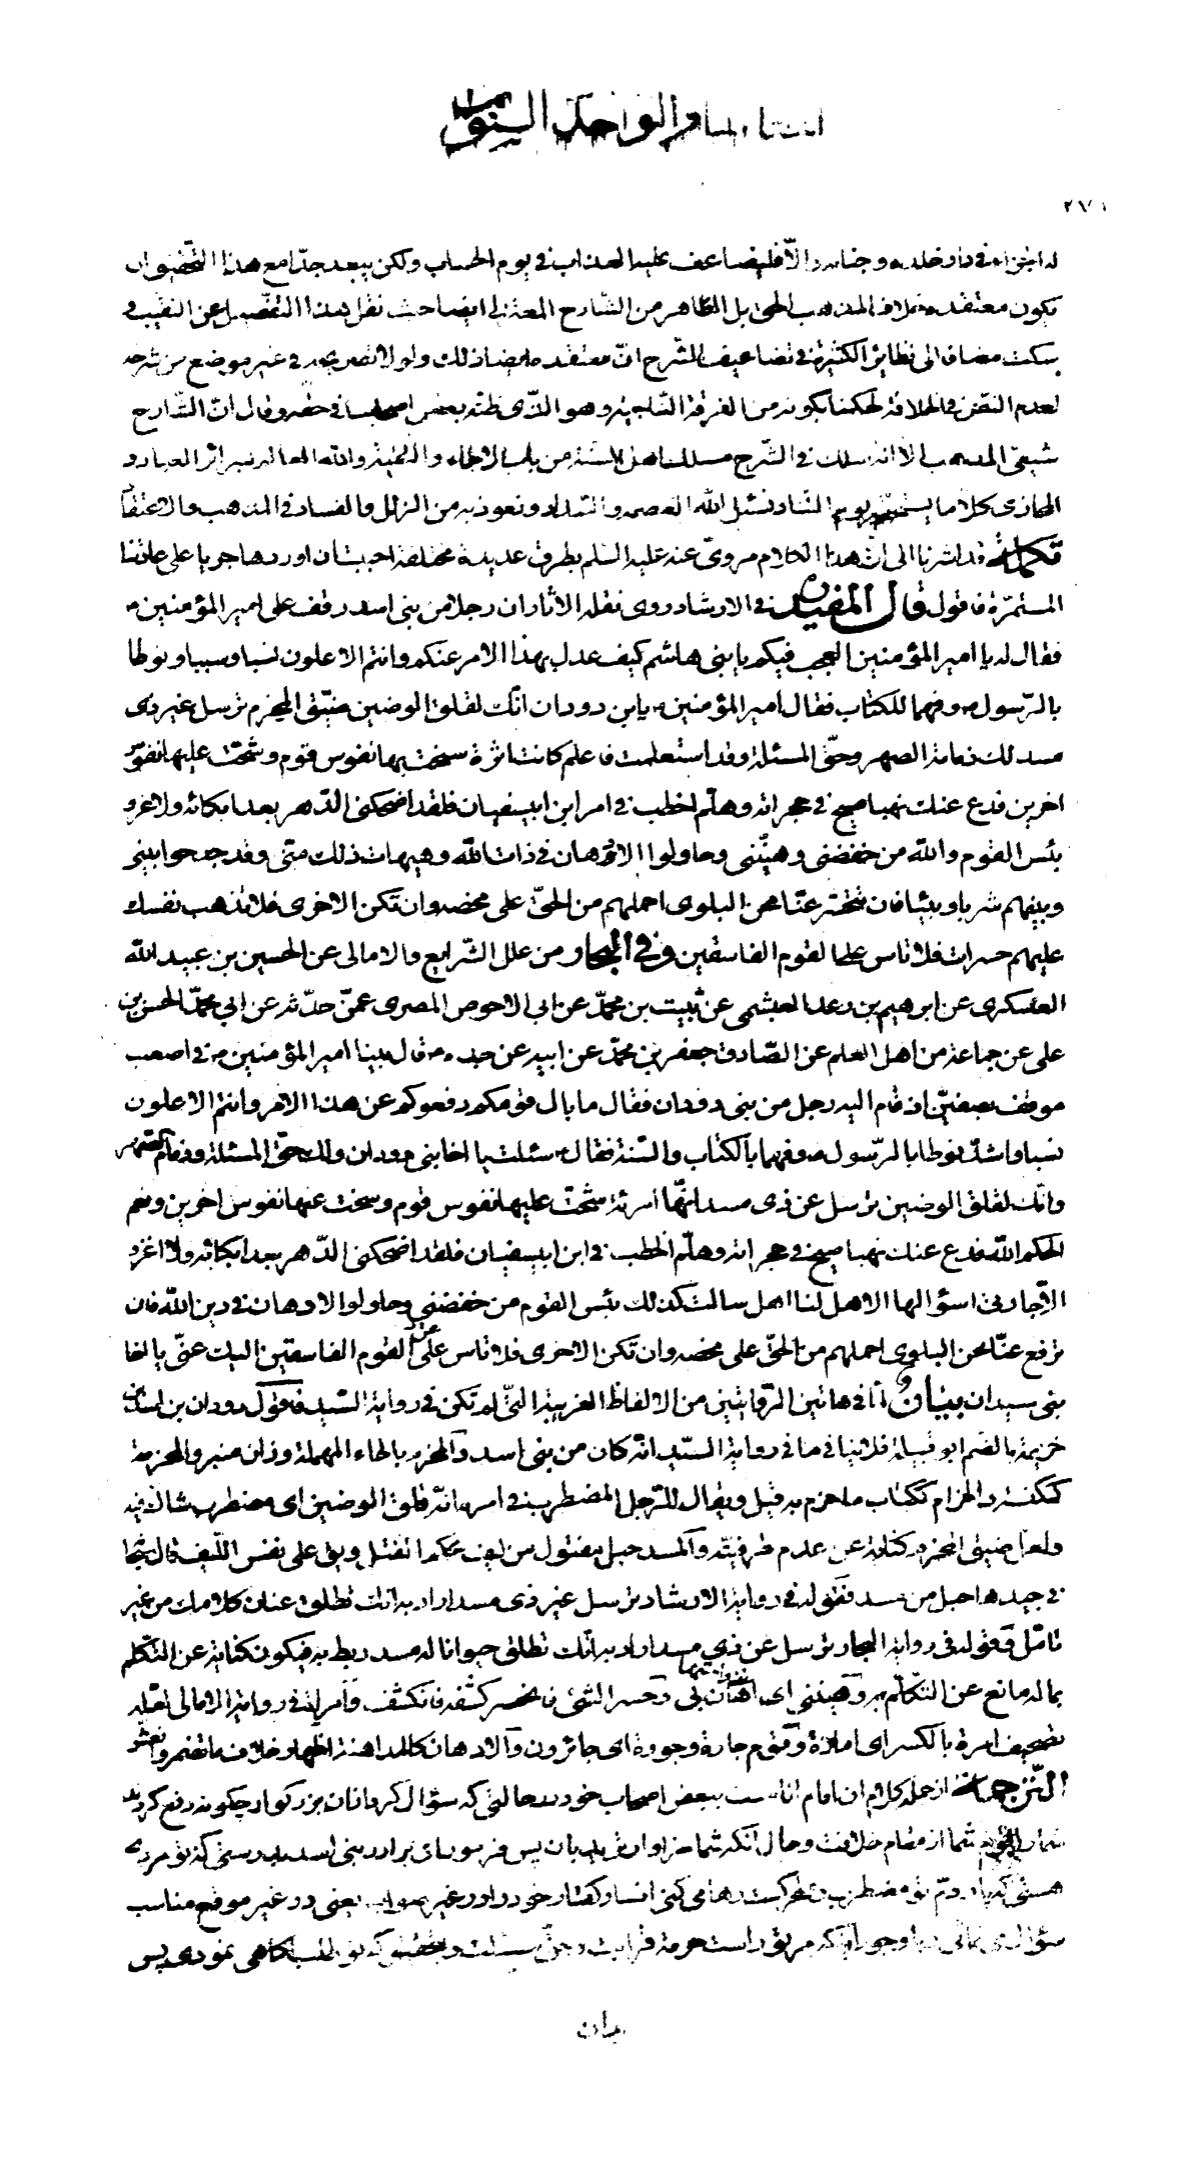 والواحد الستون
له اجزاه في دار خلده وجنانه والّا فليضاعف عليه العذاب في يوم الحساب ولكن يبعد جدّا مع هذا التحقيق ان
يكون معتقده خلاف المذهب الحق بل الظاهر من الشّارح المعتزلي ايضا حيث نقل هذا التفصيل عن النقيب و
سكت مضافا الى نظايره الكثيرة في تضاعيف الشّرح انّ معتقده ايضا ذلك ولولا تصريحه في غير موضع من شرحه
لعدم النصّ في الخلافة لحكمنا بكونه من الفرقة النّاجية وهو الذّى ظنّه بعض اصحابنا في حقّه وقال انّ الشّارح
شيعىّ المذهب الا انه سلك في الشّرح مسلك اهل السّنة من باب الالجاء والتقية والله العالم بسرائر العباد و
المجازى كلا ما يستحقّه يوم التّناد نسئل الله العصمة والسّداد ونعوذ به من الزلل والفساد في المذهب والاعتقاد
تكملة قد اشرنا الى انّ هذا الكلام مروىّ عنه عليه السّلم بطرق عديدة مختلفة احببت ان اوردها جريا على عادتنا
المستمرّة فاقول قال المفيد في الارشاد روى نقله الآثار ان رجلا من بنى اسد وقف على امير المؤمنين ع
فقال له يا امير المؤمنين العجب فيكم يا بنى هاشم كيف عدل بهذا الامر عنكم وانتم الاعلون نسبا وسببا ونوطا
بالرّسول ص وفهما للكتاب فقال امير المؤمنين ع يابن دودان انّك لقلق الوضين ضيّق المحزم ترسل غير ذى
مسد لك ذمامة الصهر وحقّ المسئلة وقد استعلمت فاعلم كانت اثرة سخت بها نفوس قوم وشحّت عليها نفوس
اخرين فدع عنك نهبا صيح في حجراته وهلمّ الخطب في امر ابن ابيسفيان فلقد اضحكنى الدّهر بعد ابكائه ولا غرو
بئس القوم والله من خفضنى وهيّننى وحاولوا الادهان في ذات الله وهيهات ذلك منّى وقد جدحوا بينى
وبينهم شربا وبيئا فان تنحسر عنّا محن البلوى احملهم من الحقّ على محضه وان تكن الاخرى فلا تذهب نفسك
عليهم حسرات فلا تاس على القوم الفاسقين وفي البحار من علل الشّرايع والامالى عن الحسين بن عبيد الله
العسكرى عن ابرهيم بن رعد العبشمى عن ثبيت بن محمّد عن ابى الاحوص المصرى عمّن حدّثه عن ابى محمّد الحسن بن
على عن جماعة من اهل العلم عن الصّادق جعفر بن محمّد عن ابيه عن جده ع قال بينا امير المؤمنين ع في اصعب
موقف بصفّين اذ قام اليه رجل من بنى دودان فقال ما بال قومكم دفعوكم عن هذا الامر وانتم الاعلون
نسبا واشدّ نوطا بالرّسول ص وفهما بالكتاب والسّنة فقال ع سئلت يا اخا بنى دودان ولك حقّ المسئلة وذمام الصّهر
وانّك لقلق الوضين ترسل عن ذى مسد انّها امرة شحّت عليها نفوس قوم وسخت عنها نفوس اخرين ونعم
الحكم الله فدع عنك نهبا صيح في حجراته وهلمّ الخطب في ابن ابيسفيان فلقد اضحكنى الدّهر بعد ابكائه ولا غرو
الّا جارتى وسؤالها الا هل لنا اهل سالت كذلك بئس القوم من خفضنى وحاولوا الادهان في دين الله فان
ترفع عنّا محن البلوى احملهم من الحقّ على محضه وان تكن الاخرى فلا تاس على القوم الفاسقين اليك عنّى يا اخا
بنى سيدان بيان ما في هاتين الرّوايتين من الالفاظ الغريبة الّتى لم تكن في رواية السّيد فاقول دودان بن اسد بن
خزيمة بالضم ابو قبيلة فلا ينافي ما في رواية السّيد انّه كان من بنى اسد والمحزم بالحاء المهملة وزان منبر والمحزمة
كمكنسة والحزام ككتاب ما حزم به قيل ويقال للرّجل المضطرب في امره انّه قلق الوضين اى مضطرب شاكّ فيه
ولعلّ ضيق المحزم كناية عن عدم ظرفيّته والمسد حبل مفتول من ليف محكم الفتل ويق على نفس اللّيف قال تعالى
في جيدها حبل من مسد فقوله في رواية الارشاد ترسل غير ذى مسد اراد به انّك تطلق عنان كلامك من غير
تامّل وقوله في رواية البحار ترسل عن ذى مسد اراد به انّك تطلق حيوانا له مسد ربط به فيكون كناية عن التّكلم
بما له مانع عن التّكلّم به وهيّننى اى اهان بى وحسر الشّئ فانحسر كشفه فانكشف وامرة في رواية الامالى لعلّه
تصحيف اثرة بالكسر اى امارة وقوم جارة وجورة اى جائرون والادهان كالمداهنة اظهار خلاف ما تضمر والغشّ
التّرجمة از جمله كلام ان امام انام است ببعض اصحاب خود در حالتى كه سؤال كرد از آن بزركوار چكونه دفع كردند
شما را قوم شما از مقام خلافت وحال آنكه شما سزاوارتريد بآن پس فرمود اى برادر بنى اسد بدرستى كه تو مردى
هستى كه مضطرب رها مى كنى افسار كفتار خود را در غير صواب يعنى در غير موقع مناسب
سؤال مى كنى وبا وجود اين كه مر تو راست حرمة قرابت وحقّ مسئلت وبتحقيق كه تو طلب آكاهى نمودى پس
بدان